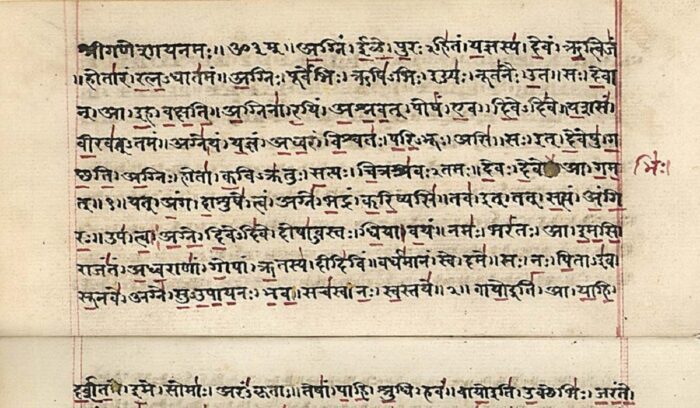 श्रीगणेशायनमः॥ओ३म्॥अग्निं।ईळे।पुरःऽहितं।यज्ञस्य।देवं।ऋत्विजं
॥होतारं।रत्नऽधातमं॥अग्निः।पूर्वेभिः।ऋषिऽभिः।ईड्यः।नूतनैः।उत।सः।देवा
न्।आ।इह।वक्षति॥अग्निना।रयिं।अश्नवत्।पोषं।एव।दिवेऽदिवे।यशसं।
वीरवत्ऽतमं॥अग्ने।यं।यज्ञं।अध्वरं।विश्वतः।परिऽभूः।असि।सः।इत्।देवेषु।ग
च्छति॥अग्निः।होता।कविऽक्रतुः।सत्यः।चित्रश्रवःऽतमः॥देवः।देवे आ।गम भिः।
त्॥१॥यत्।अंग।दाशुषे।त्वं।अग्ने।भद्रं।करिष्यसि।तव।इत्।तत्।सत्यं।अंगि
रः॥उप।त्वा।अग्ने।दिवेऽदिवे।दोषाऽवस्तः।धिया।वयं।नमः।भरंतः।आ।इमसि॥
राजंतं।अध्वराणां।गोपां।ऋतस्य।दीदिविं॥वर्धमानं।स्वे।दमे॥सः।नः।पिताऽइव
सूनवे।अग्ने।सुऽउपायनः।भव।सचस्व।नः।स्वस्तये॥२॥वायोइति।आ।याहि।
दर्शत।इमे।सोमाः।अरंऽकृताः।तेषां।पाहि।श्रुधि।हवं॥वायोइति।उक्थेभिः।जरंते।